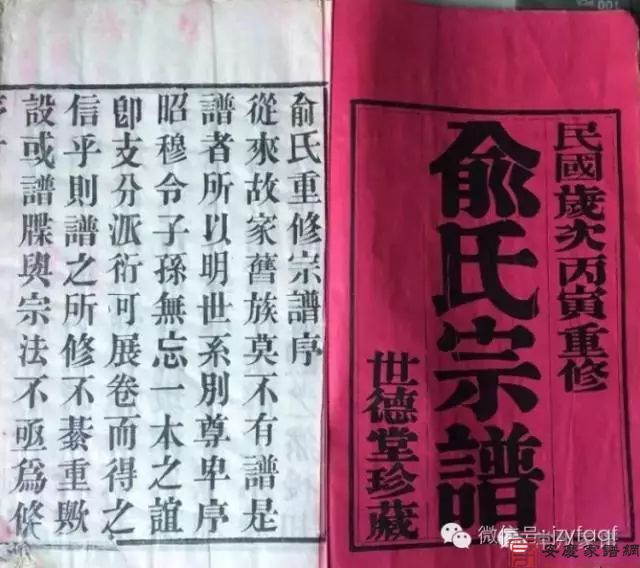 民國歲次丙寅重修
俞氏宗譜
世德堂珍藏
俞氏重修宗譜序
從來故家舊族莫不有譜是
譜者所以明世系別尊卑序
昭穆令子孫無忘一本之誼
卽支分派衍可展卷而得之
信乎則譜之所修不綦重歟
設或譜牒與宗法不亟爲修
微信号: jzyfaqf
安慶家譜網